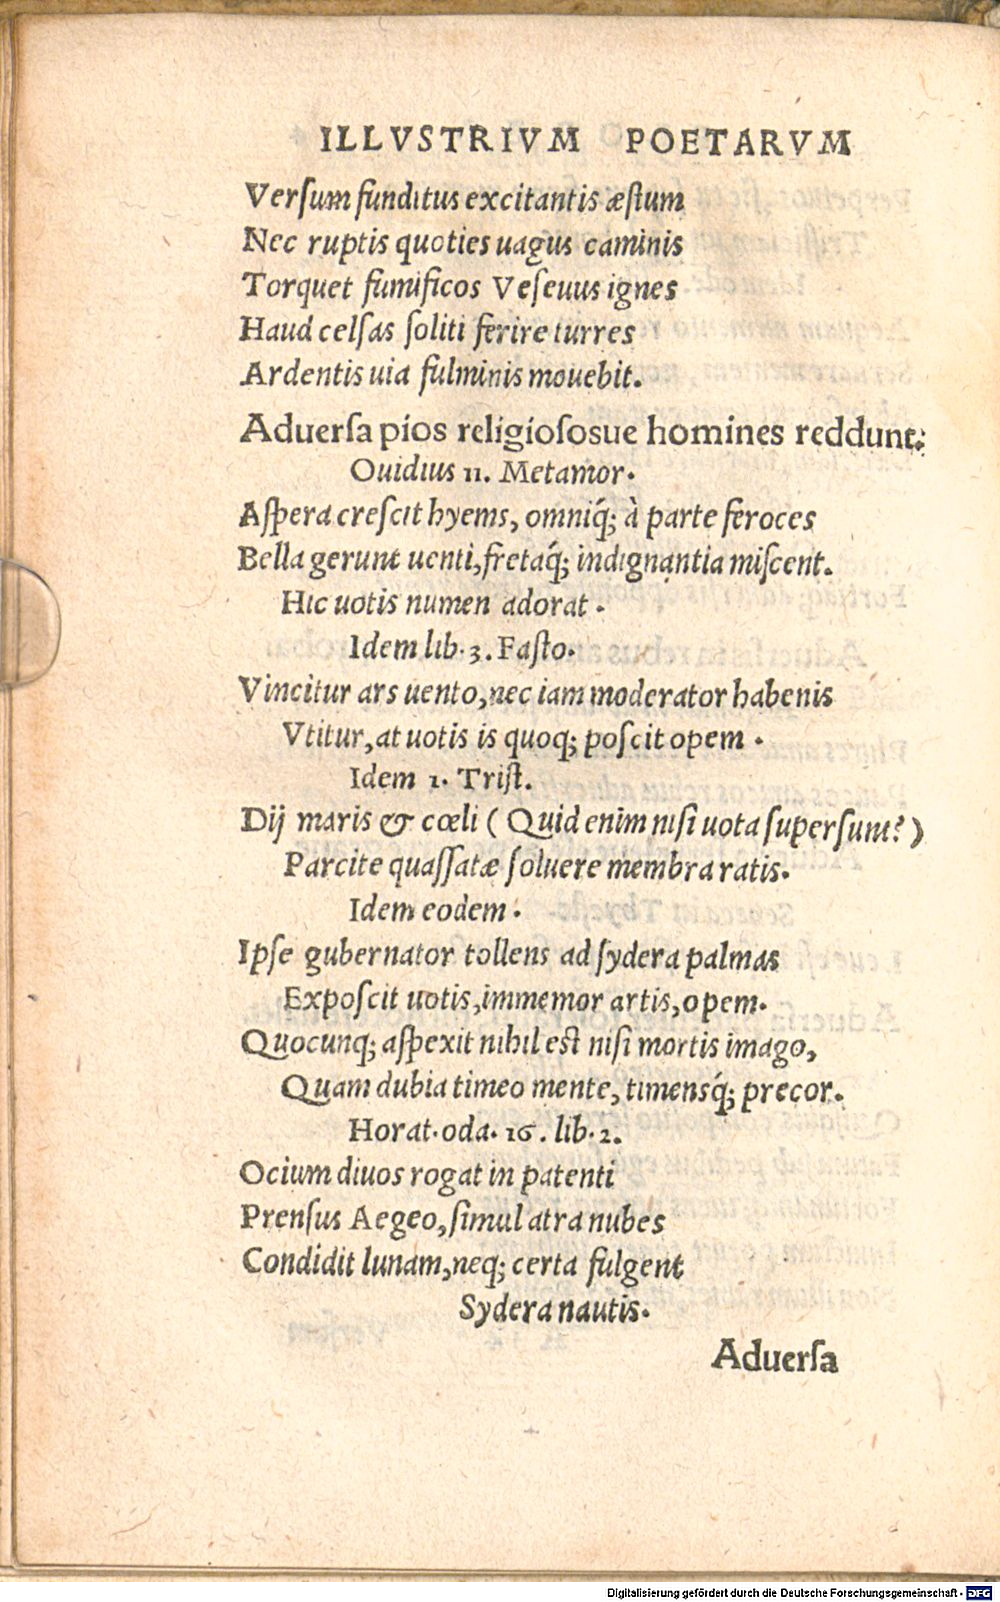 ILLVSTRIVM POETARVM
Versum funditus excitantis æstum
Nec ruptis quoties uagus caminis
Torquet fumificos Veseuus ignes
Haud celsas soliti ferire turres
Ardentis uia fulminis mouebit.
Aduersa pios religiososue homines reddunt:
Ouidius 11. Metamor.
Aspera crescit hyems, omniq́; à parte feroces
Bella gerunt uenti, fretaq́; indignantia miscent.
Hic uotis numen adorat.
Idem lib. 3. Fasto.
Vincitur ars uento, nec iam moderator habenis
Vtitur, at uotis is quoq; poscit opem.
Idem 1. Trist.
Dij maris & cœli (Quid enim nisi uota supersunt?)
Parcite quassatæ soluere membra ratis.
Idem eodem.
Ipse gubernator tollens ad sydera palmas
Exposcit uotis, immemor artis, opem.
Quocunq; aspexit nihil est nisi mortis imago,
Quam dubia timeo mente, timensq́; precor.
Horat. oda. 16. lib. 2.
Ocium diuos rogat in patenti
Prensus Aegeo, simul atra nubes
Condidit lunam, neq; certa fulgent
Sydera nautis.
Aduersa
Digitalisierung gefördert durch die Deutsche Forschungsgemeinschaft - DFG